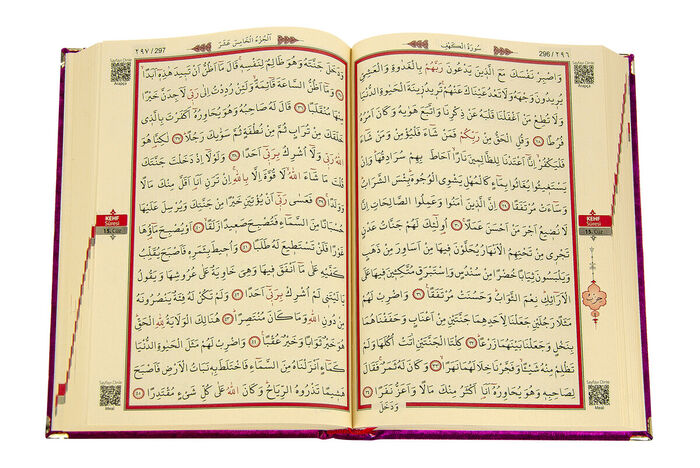 سُورَةُ الْكَهْفِ
296 / ٢٩٦
وَاصْبِرْ نَفْسَكَ مَعَ الَّذِينَ يَدْعُونَ رَبَّهُمْ بِالْغَدٰوةِ وَالْعَشِيِّ
يُرِيدُونَ وَجْهَهُ وَلَا تَعْدُ عَيْنَاكَ عَنْهُمْ تُرِيدُ زِينَةَ الْحَيٰوةِ الدُّنْيَا
وَلَا تُطِعْ مَنْ اَغْفَلْنَا قَلْبَهُ عَنْ ذِكْرِنَا وَاتَّبَعَ هَوٰيهُ وَكَانَ اَمْرُهُ
فُرُطًا ٢٨ وَقُلِ الْحَقُّ مِنْ رَبِّكُمْ فَمَنْ شَاءَ فَلْيُؤْمِنْ وَمَنْ شَاءَ
فَلْيَكْفُرْ اِنَّا اَعْتَدْنَا لِلظَّالِمِينَ نَارًا اَحَاطَ بِهِمْ سُرَادِقُهَا وَاِنْ
يَسْتَغِيثُوا يُغَاثُوا بِمَاءٍ كَالْمُهْلِ يَشْوِي الْوُجُوهَ بِئْسَ الشَّرَابُ
وَسَاءَتْ مُرْتَفَقًا ٢٩ اِنَّ الَّذِينَ اٰمَنُوا وَعَمِلُوا الصَّالِحَاتِ اِنَّا
لَا نُضِيعُ اَجْرَ مَنْ اَحْسَنَ عَمَلًا ٣٠ اُولٰئِكَ لَهُمْ جَنَّاتُ عَدْنٍ
تَجْرِي مِنْ تَحْتِهِمُ الْاَنْهَارُ يُحَلَّوْنَ فِيهَا مِنْ اَسَاوِرَ مِنْ ذَهَبٍ
وَيَلْبَسُونَ ثِيَابًا خُضْرًا مِنْ سُنْدُسٍ وَاِسْتَبْرَقٍ مُتَّكِئِينَ فِيهَا عَلَى
الْاَرَائِكِ نِعْمَ الثَّوَابُ وَحَسُنَتْ مُرْتَفَقًا ٣١ وَاضْرِبْ لَهُمْ
مَثَلًا رَجُلَيْنِ جَعَلْنَا لِاَحَدِهِمَا جَنَّتَيْنِ مِنْ اَعْنَابٍ وَحَفَفْنَاهُمَا
بِنَخْلٍ وَجَعَلْنَا بَيْنَهُمَا زَرْعًا ٣٢ كِلْتَا الْجَنَّتَيْنِ اٰتَتْ اُكُلَهَا وَلَمْ
تَظْلِمْ مِنْهُ شَيْـًٔا وَفَجَّرْنَا خِلَالَهُمَا نَهَرًا ٣٣ وَكَانَ لَهُ ثَمَرٌ فَقَالَ
لِصَاحِبِهِ وَهُوَ يُحَاوِرُهُ اَنَا اَكْثَرُ مِنْكَ مَالًا وَاَعَزُّ نَفَرًا ٣٤
وَدَخَلَ
Sayfayı Dinle
Arapça
KEHF
Sûresi
15. Cüz
حزب
Sayfayı Dinle
Meal
اَلْجُزْءُ الْخَامِسَ عَشَرَ
٢٩٧ / 297
وَدَخَلَ جَنَّتَهُ وَهُوَ ظَالِمٌ لِنَفْسِهِ قَالَ مَا اَظُنُّ اَنْ تَبِيدَ هٰذِهِ اَبَدًا
٣٥ وَمَا اَظُنُّ السَّاعَةَ قَائِمَةً وَلَئِنْ رُدِدْتُ اِلٰى رَبِّي لَاَجِدَنَّ خَيْرًا
مِنْهَا مُنْقَلَبًا ٣٦ قَالَ لَهُ صَاحِبُهُ وَهُوَ يُحَاوِرُهُ اَكَفَرْتَ بِالَّذِي
خَلَقَكَ مِنْ تُرَابٍ ثُمَّ مِنْ نُطْفَةٍ ثُمَّ سَوّٰيكَ رَجُلًا ٣٧ لٰكِنَّا هُوَ
اللّٰهُ رَبِّي وَلَا اُشْرِكُ بِرَبِّي اَحَدًا ٣٨ وَلَوْلَا اِذْ دَخَلْتَ جَنَّتَكَ
قُلْتَ مَا شَاءَ اللّٰهُ لَا قُوَّةَ اِلَّا بِاللّٰهِ اِنْ تَرَنِ اَنَا اَقَلَّ مِنْكَ مَالًا
وَوَلَدًا ٣٩ فَعَسٰى رَبِّي اَنْ يُؤْتِيَنِ خَيْرًا مِنْ جَنَّتِكَ وَيُرْسِلَ عَلَيْهَا
حُسْبَانًا مِنَ السَّمَاءِ فَتُصْبِحَ صَعِيدًا زَلَقًا ٤٠ اَوْ يُصْبِحَ مَاؤُهَا
غَوْرًا فَلَنْ تَسْتَطِيعَ لَهُ طَلَبًا ٤١ وَاُحِيطَ بِثَمَرِهِ فَاَصْبَحَ يُقَلِّبُ
كَفَّيْهِ عَلٰى مَا اَنْفَقَ فِيهَا وَهِيَ خَاوِيَةٌ عَلٰى عُرُوشِهَا وَيَقُولُ
يَا لَيْتَنِي لَمْ اُشْرِكْ بِرَبِّي اَحَدًا ٤٢ وَلَمْ تَكُنْ لَهُ فِئَةٌ يَنْصُرُونَهُ
مِنْ دُونِ اللّٰهِ وَمَا كَانَ مُنْتَصِرًا ٤٣ هُنَالِكَ الْوَلَايَةُ لِلّٰهِ الْحَقِّ
هُوَ خَيْرٌ ثَوَابًا وَخَيْرٌ عُقْبًا ٤٤ وَاضْرِبْ لَهُمْ مَثَلَ الْحَيٰوةِ الدُّنْيَا
كَمَاءٍ اَنْزَلْنَاهُ مِنَ السَّمَاءِ فَاخْتَلَطَ بِهِ نَبَاتُ الْاَرْضِ فَاَصْبَحَ
هَشِيمًا تَذْرُوهُ الرِّيَاحُ وَكَانَ اللّٰهُ عَلٰى كُلِّ شَيْءٍ مُقْتَدِرًا ٤٥
Sayfayı Dinle
Arapça
KEHF
Sûresi
15. Cüz
Sayfayı Dinle
Meal